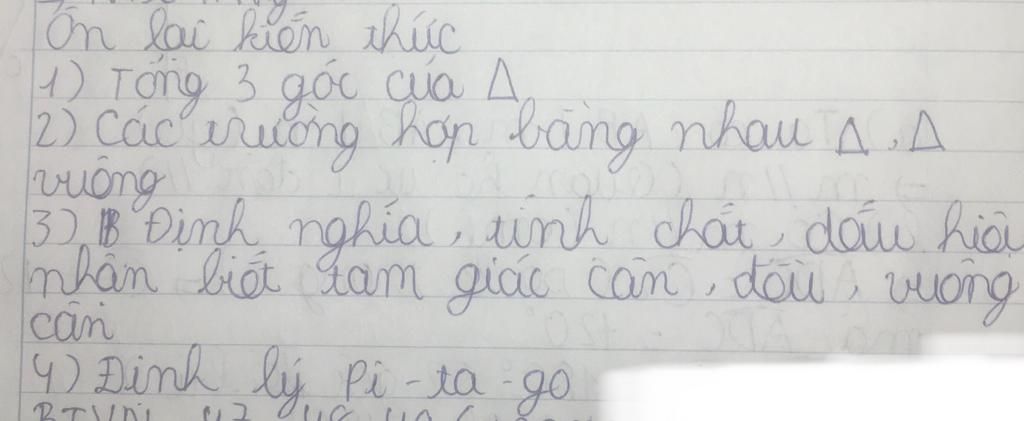 Ôn lại kiến thức
1) Tổng 3 góc của Δ
2) Các trường hợp bằng nhau Δ, Δ
vuông
3) Định nghĩa, tính chất, dấu hiệu
nhận biết tam giác cân, đều, vuông
cân
4) Định lý Pi-ta-go